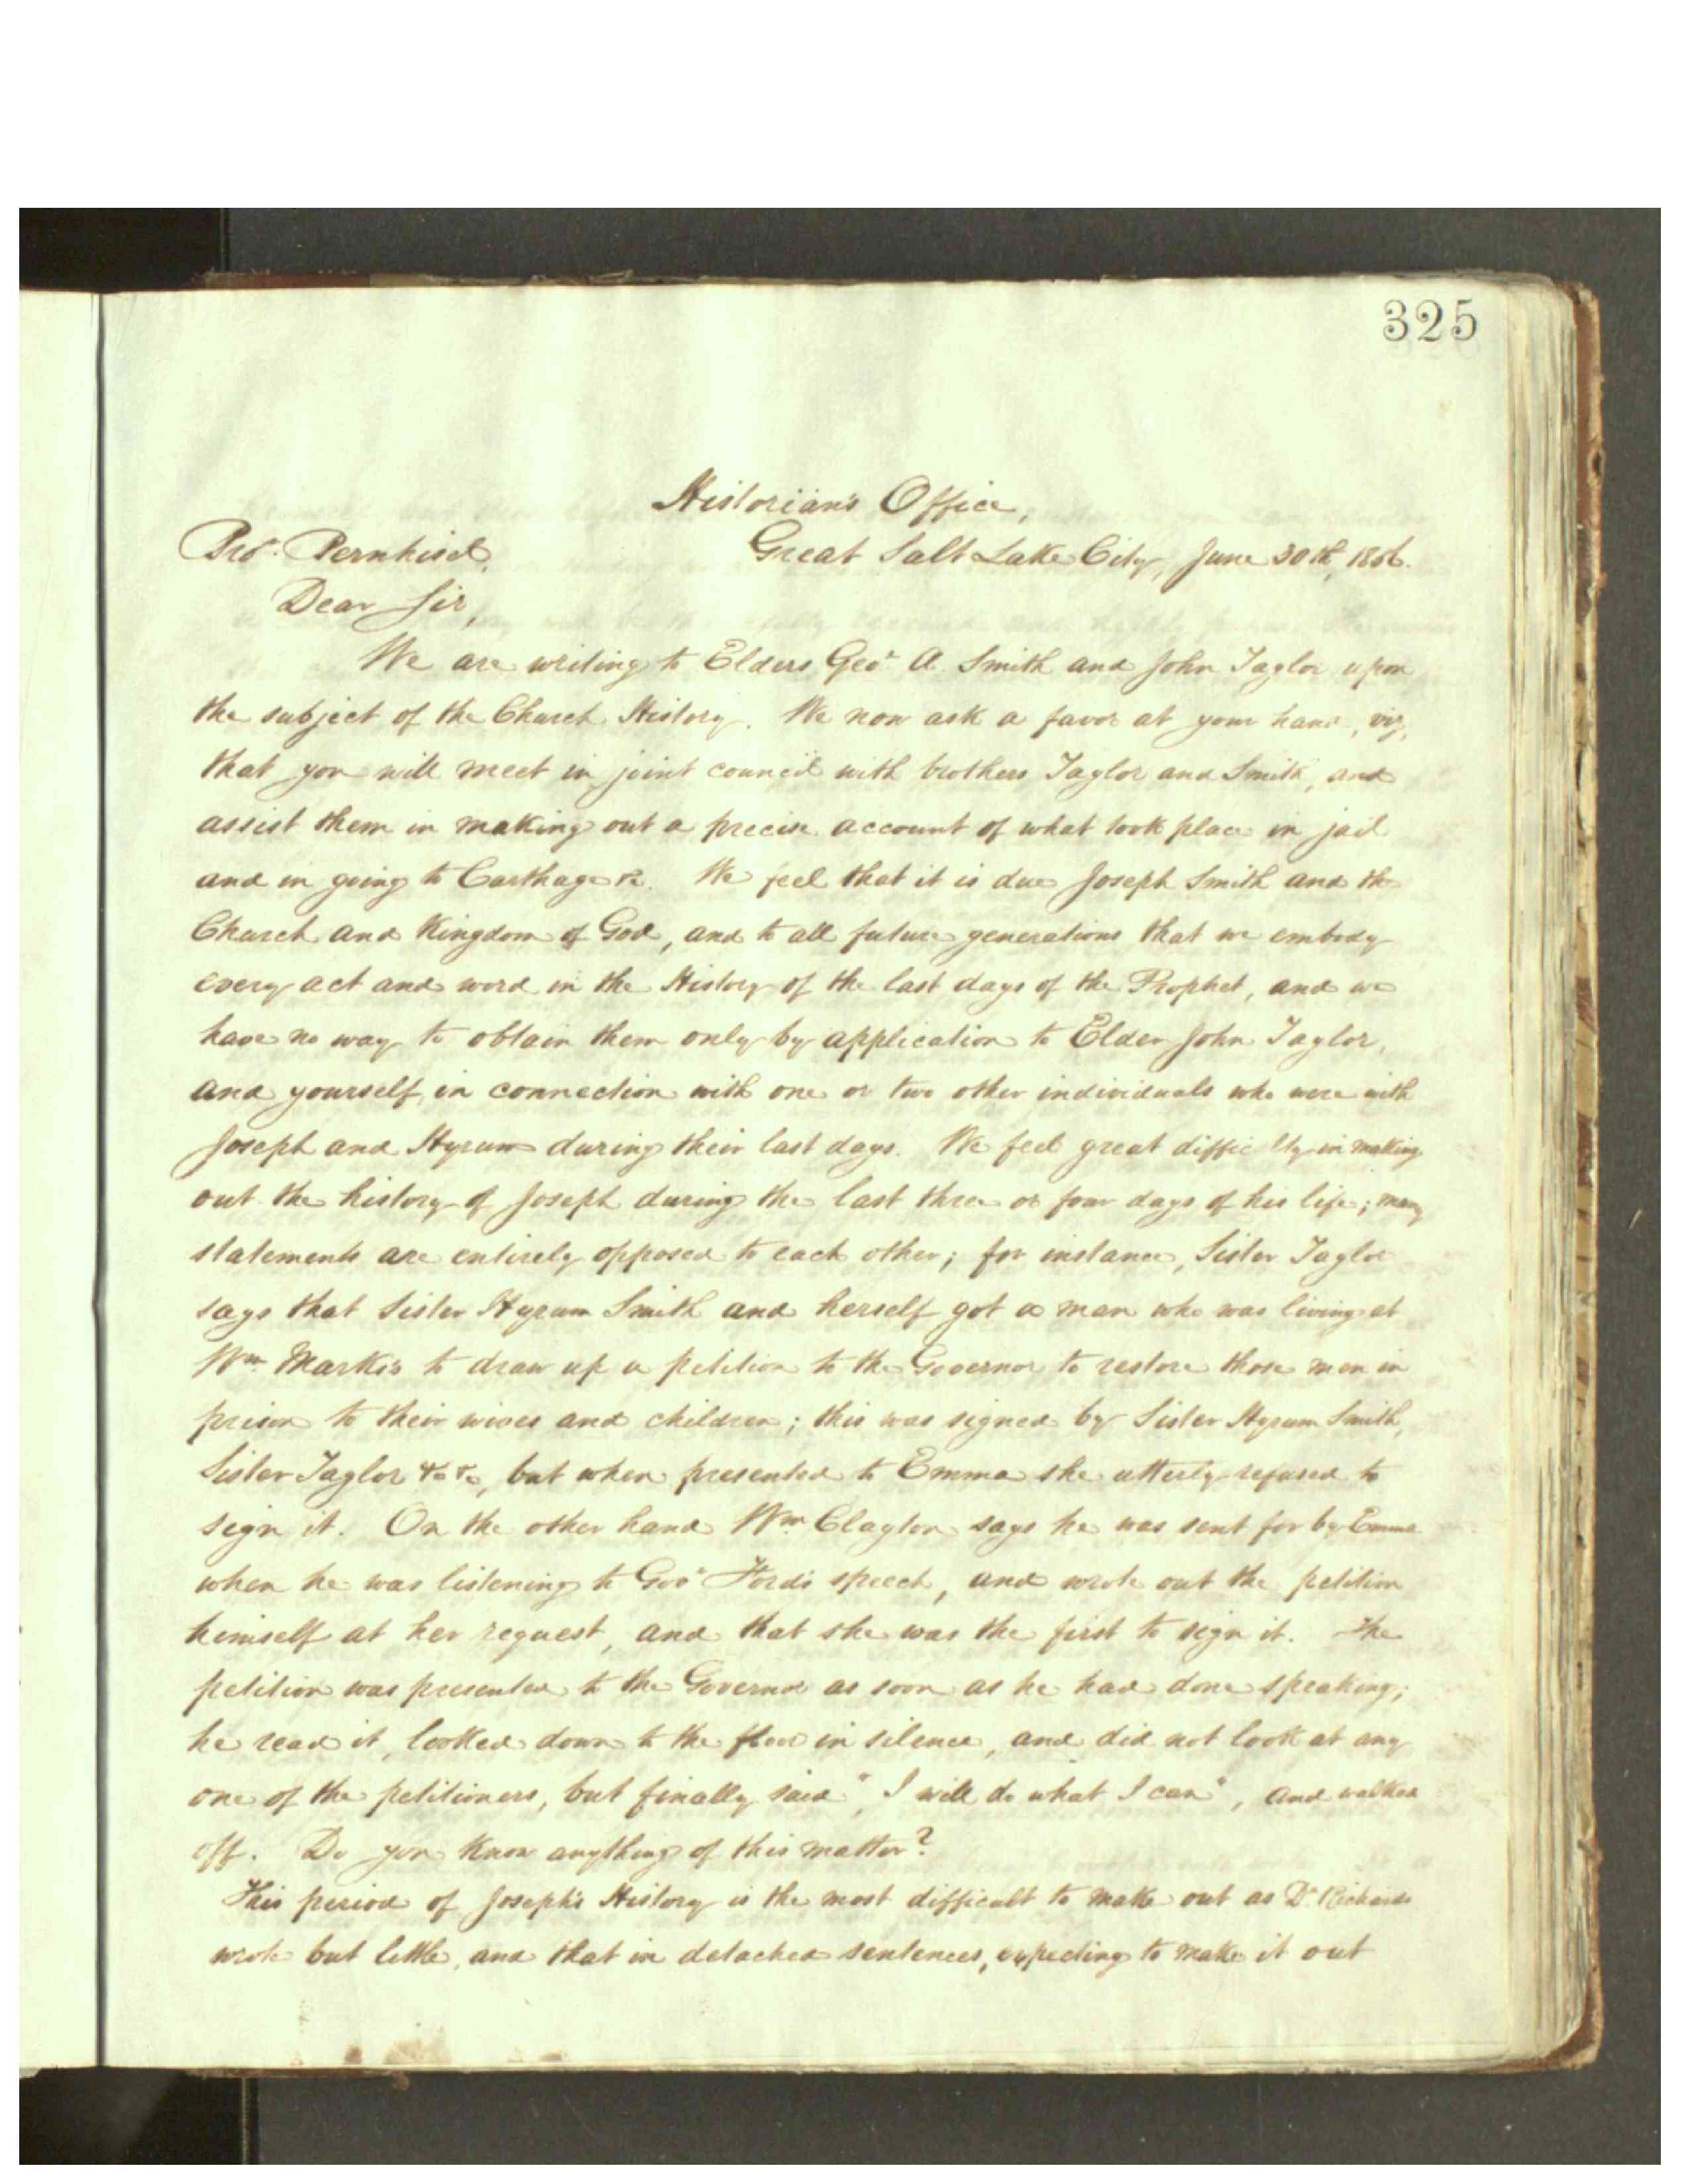 325
Historian's Office,
Bro. Bernhisel, Great Salt Lake City, June 30th, 1856.
Dear Sir,
We are writing to Elders Geo. A. Smith and John Taylor upon
the subject of the Church History. We now ask a favor at your hand, viz,
that you will meet in joint council with brothers Taylor and Smith, and
assist them in making out a precise account of what took place in jail
and in going to Carthage &c. We feel that it is due Joseph Smith and the
Church and Kingdom of God, and to all future generations that we embody
every act and word in the History of the last days of the Prophet, and we
have no way to obtain them only by application to Elder John Taylor,
and yourself, in connection with one or two other individuals who were with
Joseph and Hyrum during their last days. We feel great difficulty in making
out the history of Joseph during the last three or four days of his life; many
statements are entirely opposed to each other; for instance, Sister Taylor
says that Sister Hyrum Smith and herself got a man who was living at
Wm. Marks's to draw up a petition to the Governor to restore those men in
prison to their wives and children; this was signed by Sister Hyrum Smith,
Sister Taylor &c &c, but when presented to Emma she utterly refused to
sign it. On the other hand Wm Clayton says he was sent for by Emma
when he was listening to Gov. Ford's speech, and wrote out the petition
himself at her request, and that she was the first to sign it. The
petition was presented to the Governor as soon as he had done speaking;
he read it, looked down to the floor in silence, and did not look at any
one of the petitioners, but finally said "I will do what I can", and walked
off. Do you know anything of this matter?
This period of Joseph's History is the most difficult to make out as Dr. Richards
wrote but little, and that in detached sentences, expecting to make it out